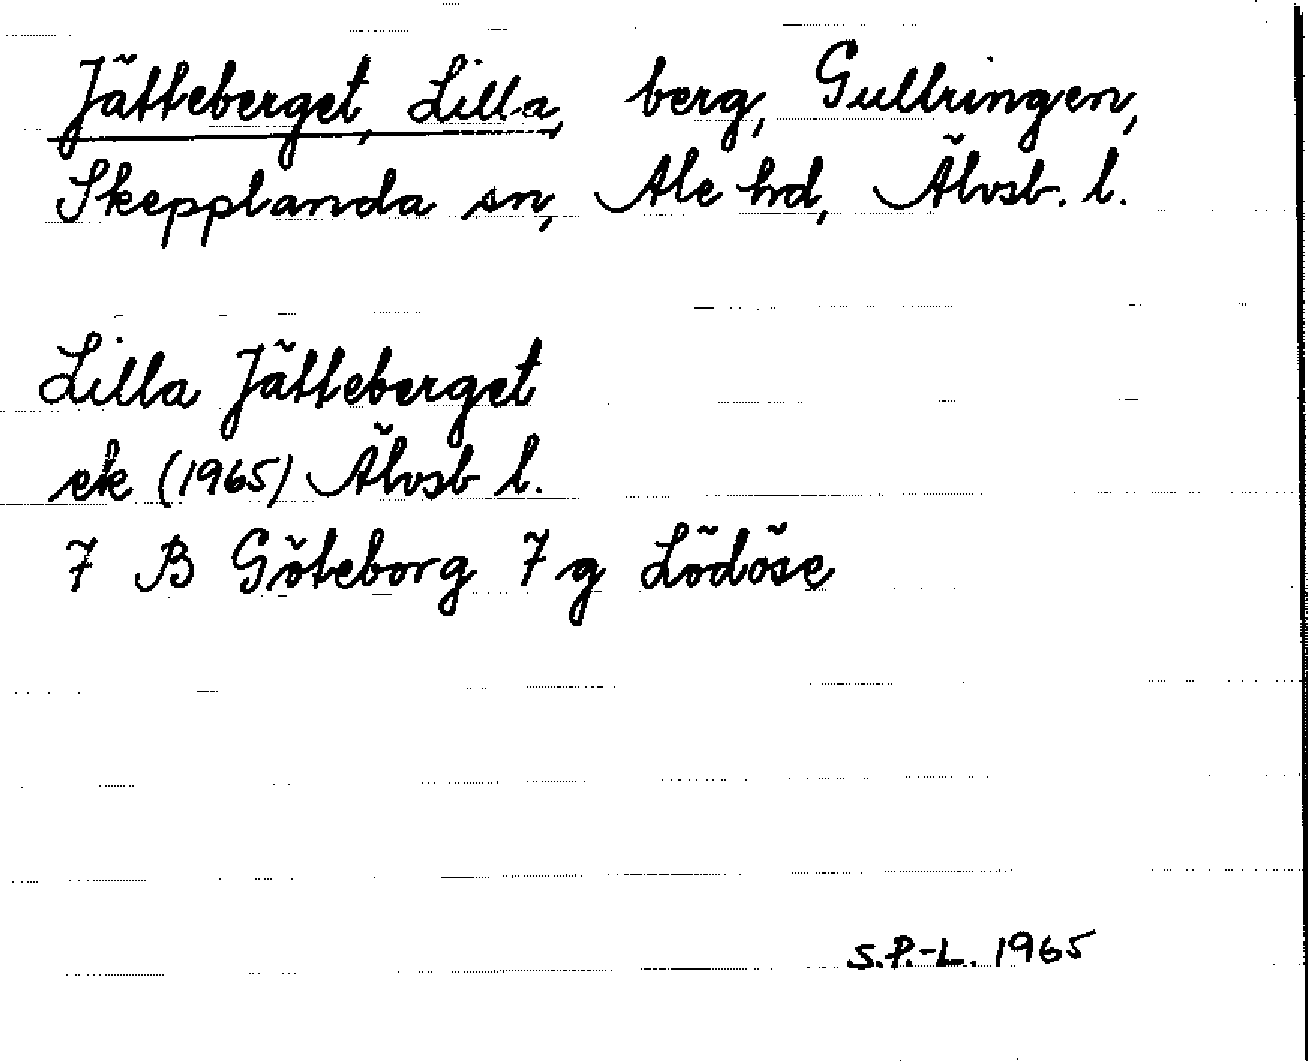 Jätteberget, Lilla, berg, Gullringen,
Skepplanda sn, Ale hd, Älvsb. l.
Lilla Jätteberget
ek (1965) Älvsb l.
7 B Göteborg 7 g Lödöse
S.P.-L. 1965